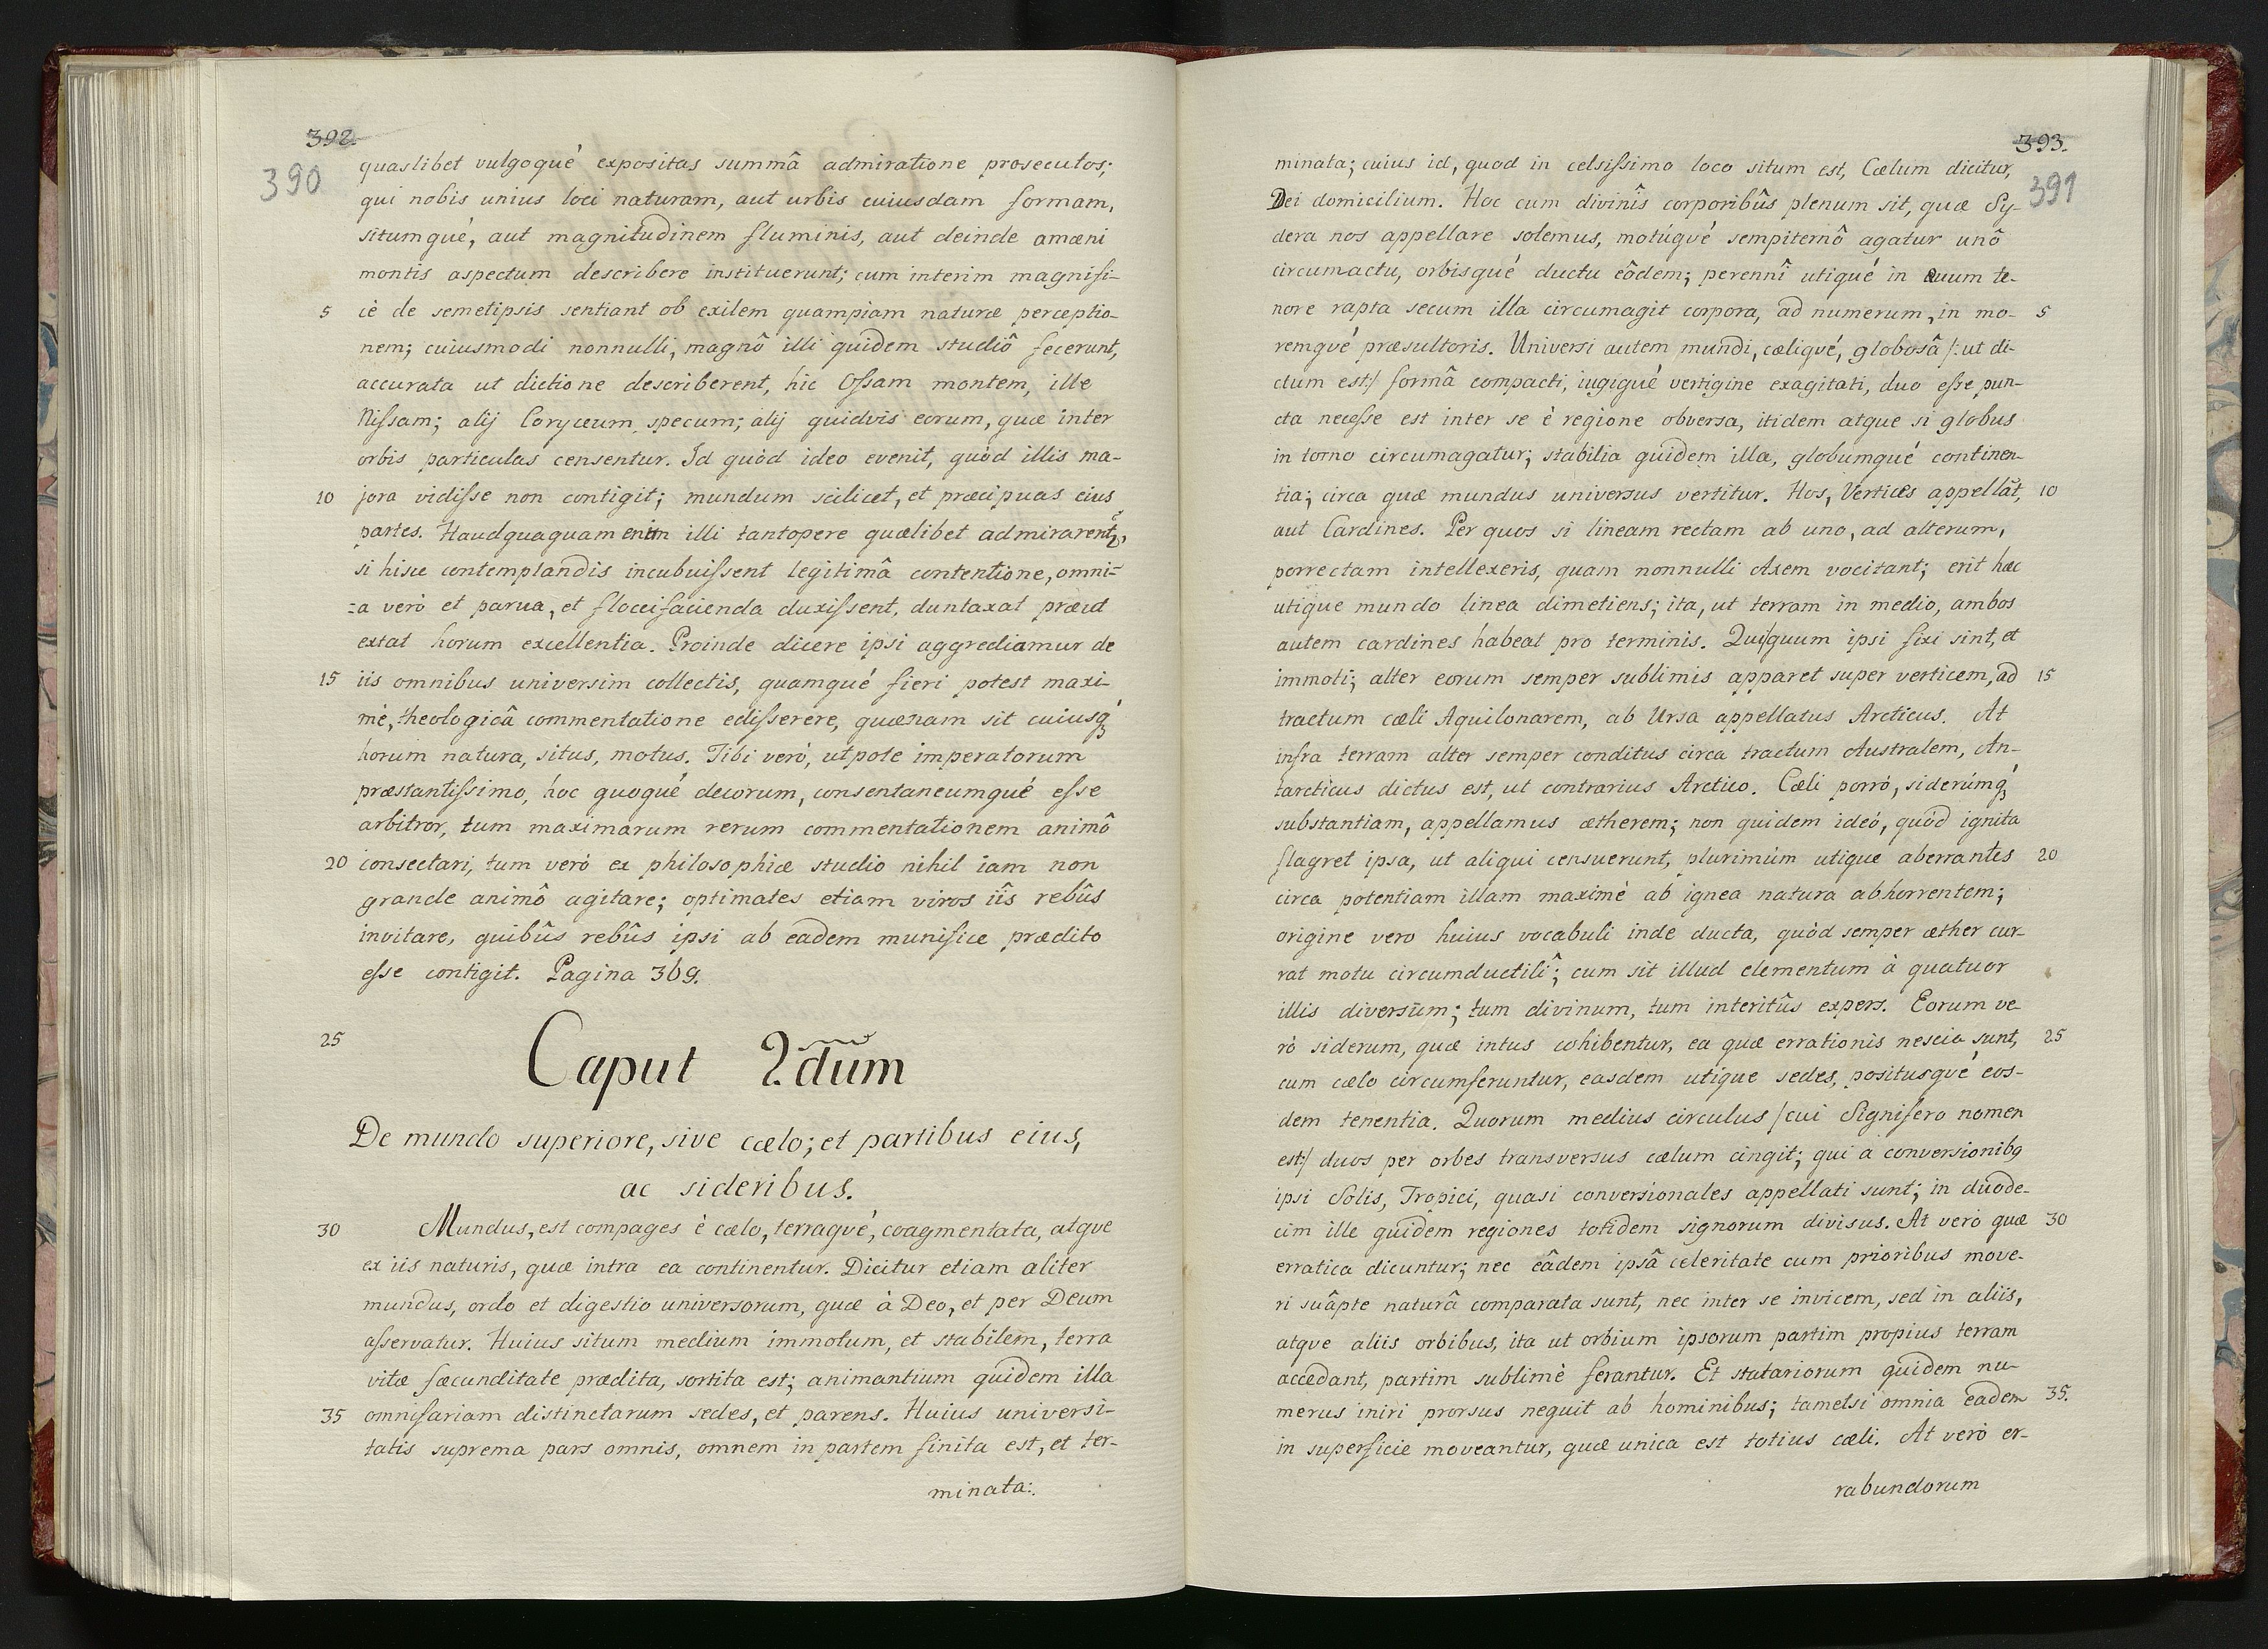 392.
390
quaslibet vulgoqué expositas summâ admiratione prosecutos;
qui nobis unius loci naturam, aut urbis cuiusdam formam,
situmqué, aut magnitudinem fluminis, aut deinde amœni
montis aspectum describere instituerunt; cum interim magnifi-
5 cè de semetipsis sentiant ob exilem quampiam naturæ perceptio-
nem; cuiusmodi nonnulli, magnô illi quidem studiô fecerunt,
accurata ut dictione describerent, hic Ossam montem, ille
Nissam; alij Coryceum specum; alij quidvis eorum, quæ inter
orbis particulas censentur. Id quòd ideo evenit, quòd illis ma-
10 jora vidisse non contigit; mundum scilicet, et præcipuas eius
partes. Haudquaquam enim illi tantopere quælibet admirarent,
si hisce contemplandis incubuissent legitimâ contentione, omni-
=a verò et parva, et floccifacienda duxissent, duntaxat præut
extat horum excellentia. Proinde dicere ipsi aggrediamur de
15 iis omnibus universim collectis, quamqué fieri potest maxi-
mè, theologicâ commentatione edisserere, quænam sit cuiusq́
horum natura, situs, motus. Tibi verò, utpote imperatorum
præstantissimo, hoc quoqué decorum, consentaneumqué esse
arbitror, tum maximarum rerum commentationem animô
20 consectari, tum verò ex philosophiæ studio nihil iam non
grande animô agitare; optimates etiam viros iîs rebûs
invitare, quibûs rebûs ipsi ab eadem munifice prædito
esse contigit. Pagina 369.
25
Caput 2dum
De mundo superiore, sive cœlo; et partibus eius,
ac sideribus.
30 Mundus, est compages è cœlo, terraqvé, coagmentata, atqve
ex iis naturis, quæ intra ea continentur. Dicitur etiam aliter
mundus, ordo et digestio universorum, quæ à Deo, et per Deum
asservatur. Huius situm medium immotum, et stabilem, terra
vitæ fœcunditate prædita, sortita est; animantium quidem illa
35 omnifariam distinctarum sedes, et parens. Huius universi-
tatis suprema pars omnis, omnem in partem finita est, et ter-
minata:
393.
391
minata; cuius id, quod in celsissimo loco situm est, Cœlum dicitur,
Dei domicilium. Hoc cum divinîs corporibûs plenum sit, quæ Sy-
dera nos appellare solemus, motúqvé sempiternô agatur unô
circumactu, orbisqué ductu eôdem; perennî utiqué in ævum te-
nore rapta secum illa circumagit corpora, ad numerum, in mo- 5
remqvé præsultoris. Universi autem mundi, cœliqvé, globosâ /: ut di-
ctum est:/ formâ compacti, iugiqué vertigine exagitati, duo esse pun-
cta necesse est inter se è regione obversa, itidem atque si globus
in torno circumagatur; stabilia quidem illa, globumqué continen-
tia; circa quæ mundus universus vertitur. Hos, Vertices appellāt, 10
aut Cardines. Per quos si lineam rectam ab uno, ad alterum,
porrectam intellexeris, quam nonnulli Axem vocitant; erit hæc
utique mundo linea dimetiens; ita, ut terram in medio, ambos
autem cardines habeat pro terminis. Qui quum ipsi fixi sint, et
immoti; alter eorum semper sublimis apparet super verticem, ad 15
tractum cœli Aquilonarem, ab Ursa appellatus Arcticus. At
infra terram alter semper conditus circa tractum Australem, An-
tarcticus dictus est, ut contrarius Arctico. Cœli porrò, siderúmq́
substantiam, appellamus ætherem; non quidem ideó, quòd ignita
flagret ipsa, ut aliqui censuerunt, plurimùm utique aberrantes 20
circa potentiam illam maximè ab ignea natura abhorrentem;
origine vero huius vocabuli inde ducta, quòd semper æther cur-
rat motu circumductilî; cum sit illud elementum à quatuor
illis diversūm; tum divinum, tum interitûs expers. Eorum ve-
rò siderum, quæ intus cohibentur, ea quæ errationis nescia sunt, 25
cum cœlo circumferuntur, easdem utique sedes, positusqvé eos-
dem tenentia. Quorum medius circulus /cui Signifero nomen
est:/ duos per orbes transversus cœlum cingit; qui a conversionibq
ipsi Solis, Tropici, quasi conversionales appellati sunt; in duode-
cim ille quidem regiones totidem signorum divisus. At verò quæ 30
erratica dicuntur; nec eâdem ipsâ celeritate cum prioribus move-
ri suâpte naturâ comparata sunt, nec inter se invicem, sed in aliis,
atqve aliis orbibus, ita ut orbium ipsorum partim propius terram
accedant, partim sublimè ferantur. Et statariorum quidem nu-
merus iniri prorsus nequit ab hominibus; tametsi omnia eadem 35.
in superficie moveantur, quæ unica est totius cœli. At verò er-
rabundorum